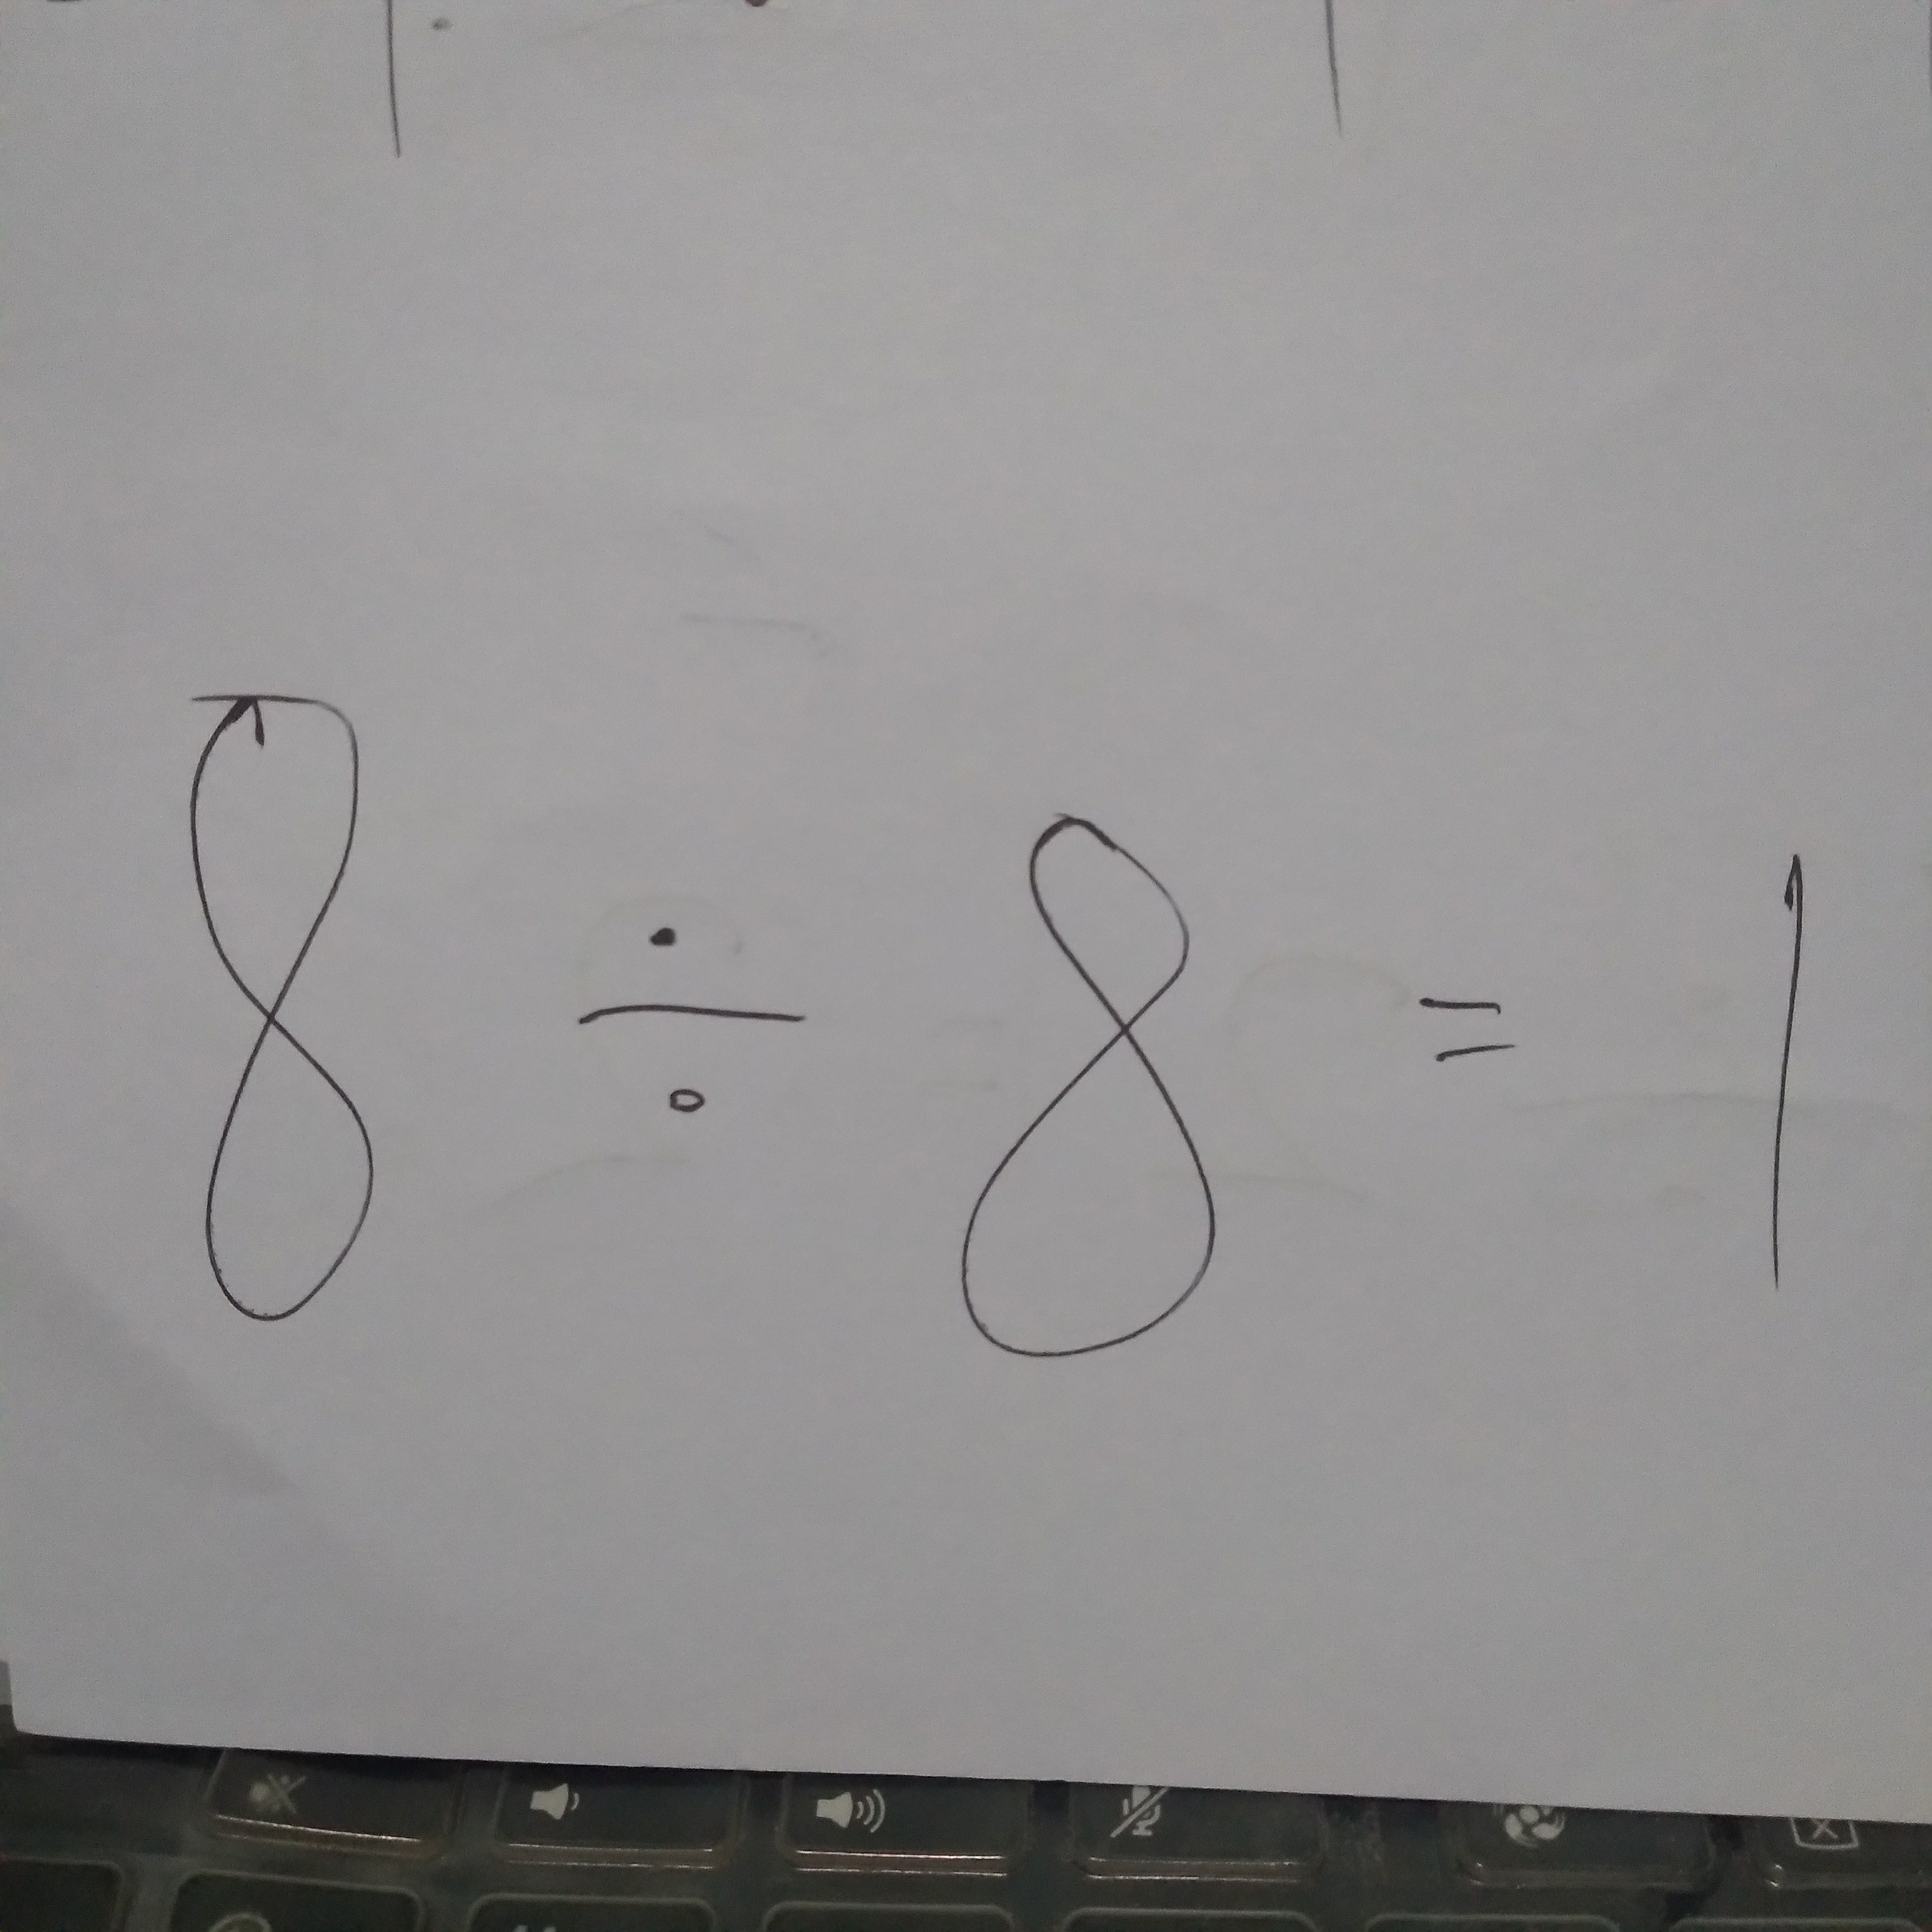 8 ÷ 8 = 1